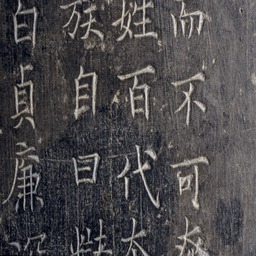 而不可
姓百代
族自曰
白貞廉